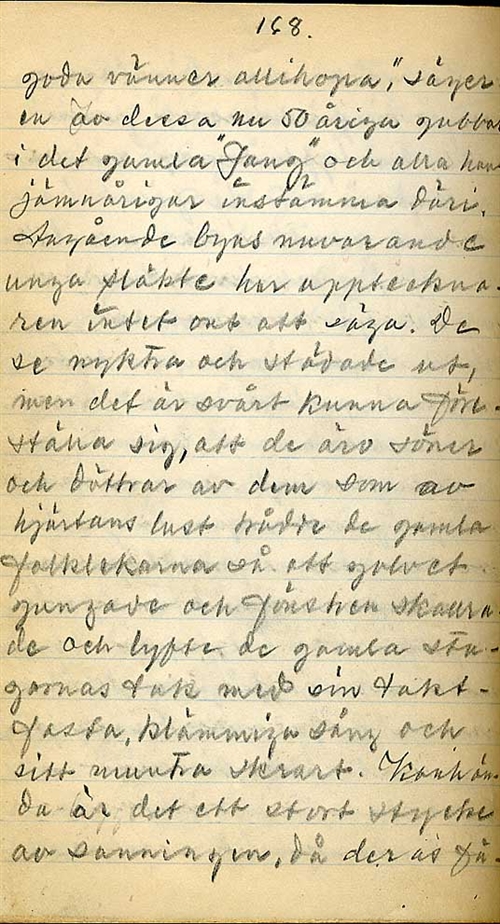 168.
goda vänner allihopa," säger
en av dessa nu 50 åriga gubbar
i det gamla "Gang" och alla hans
jämnåriga instämma däri.
Angående byns nuvarande
unga släkte har upptekna-
ren intet ont att säga. De
se nyktra och städade ut,
men det är svårt kunna före-
ställa sig, att de äro söner
och döttrar av dem som av
hjärtans lust trådde de gamla
folklekarna så att golvet
gungade och fönstren skallra
de och lyfte de gamla stu-
gornas tak med sin takt-
fasta, klämmiga sång och
sitt muntra skratt. Kanhän-
da är det ett stort stycke
av sanningen, då deras fä-